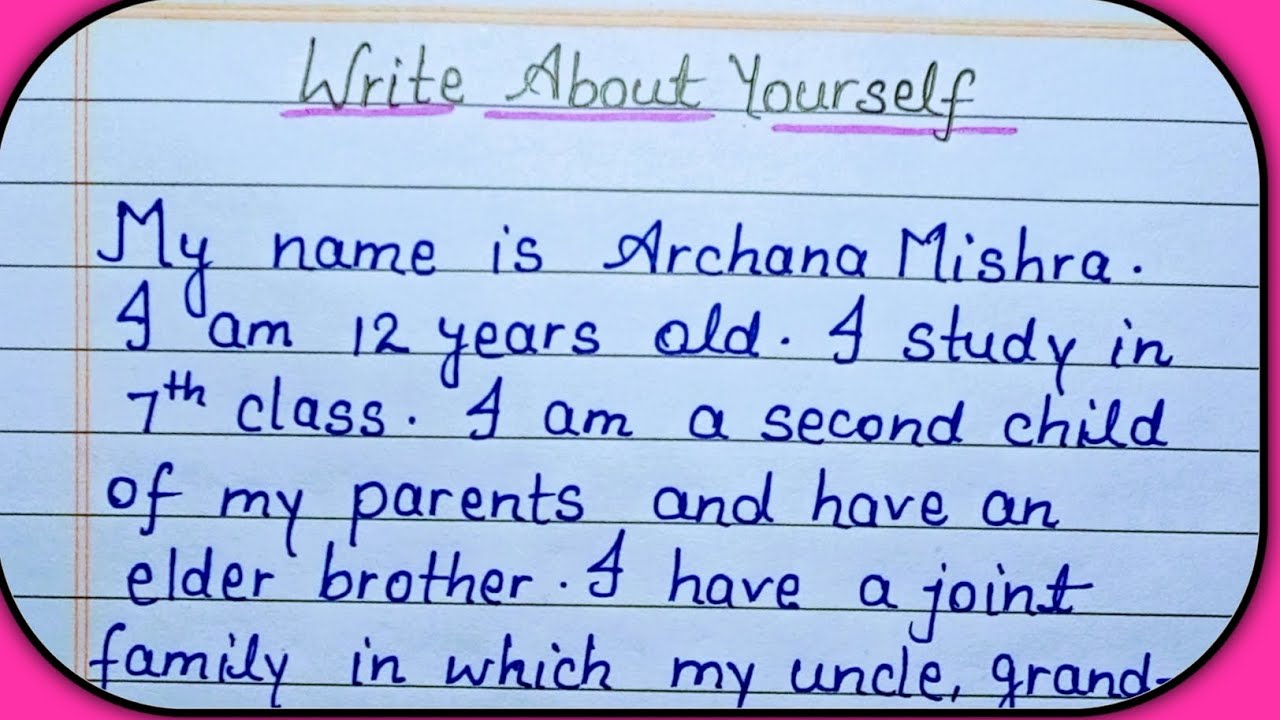 Write About Yourself
My name is Archana Mishra.
I am 12 years old. I study in
7th class. I am a second child
of my parents and have an
elder brother. I have a joint
family in which my uncle, grand-